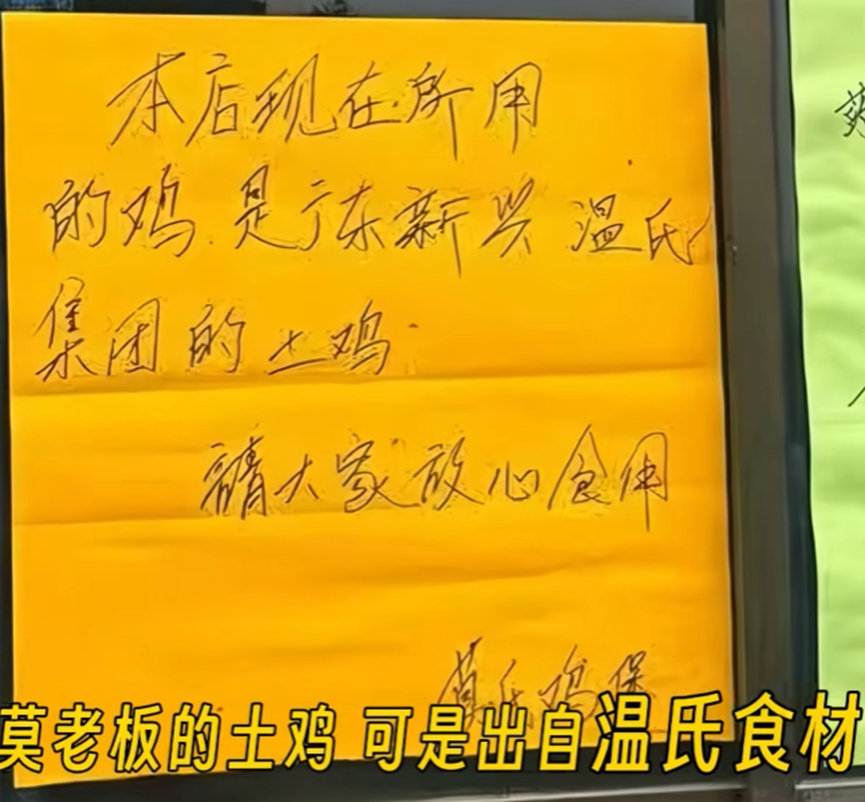 本店现在所用
的鸡是广东新兴温氏
集团的土鸡.
請大家放心食用
莫氏鸡煲
莫老板的土鸡 可是出自温氏食材